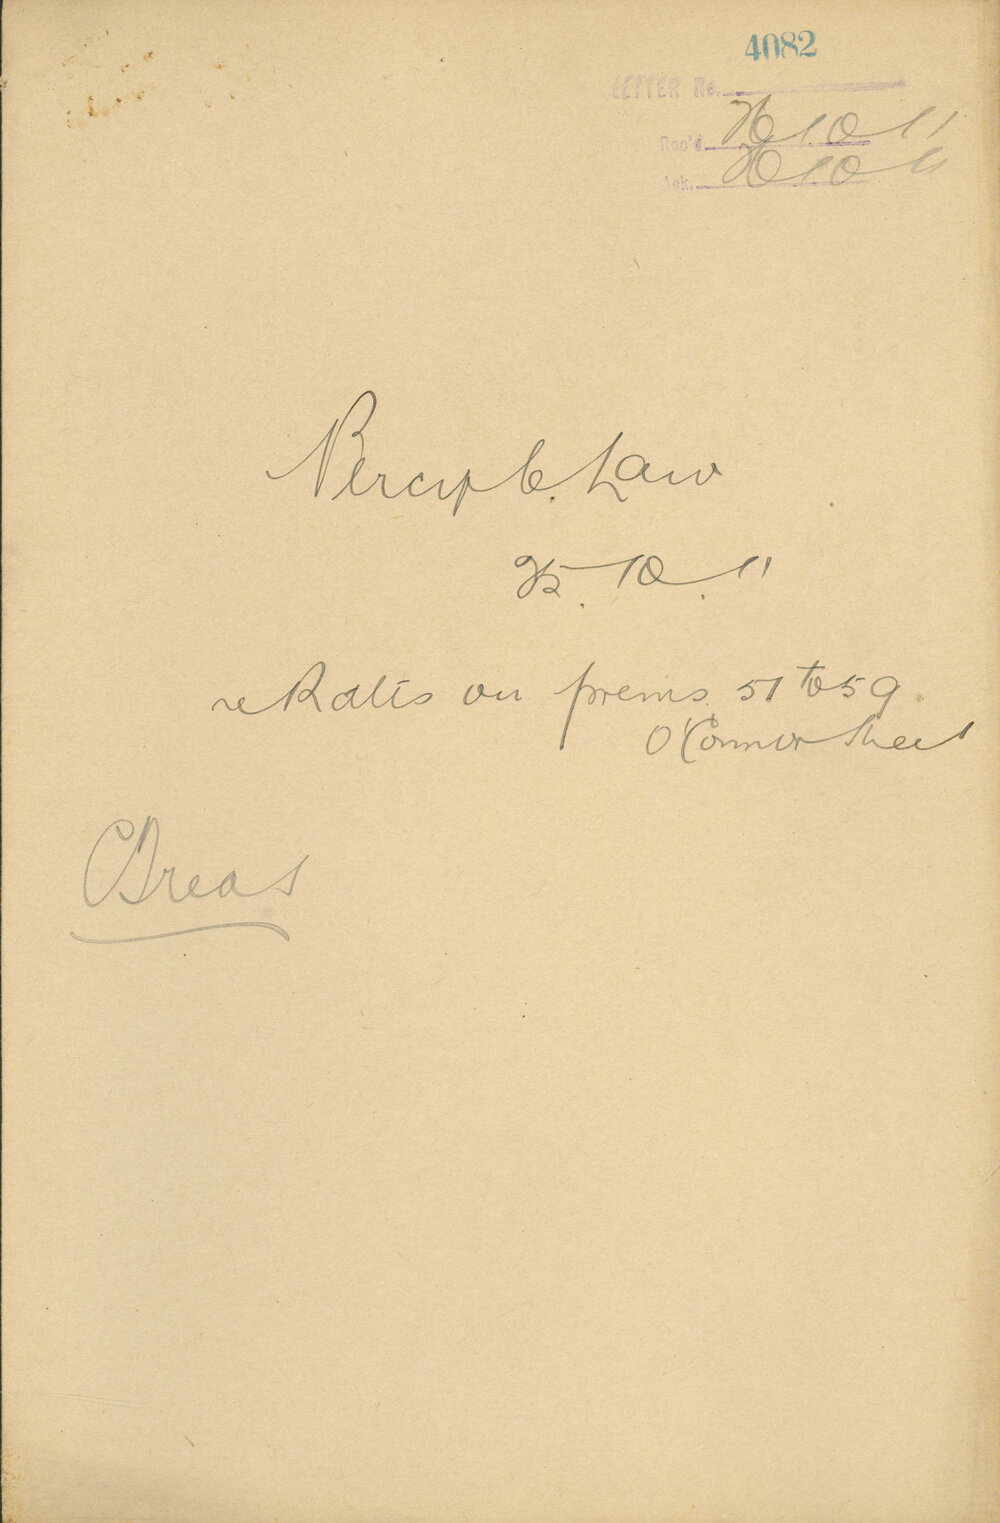 4082
LETTER No.
Rec'd 26/10/11
Ack. 26/10/11
Percy C. Law
25.10.11
re Rates on prems. 51 to 59
O'Connor Street
C Treas